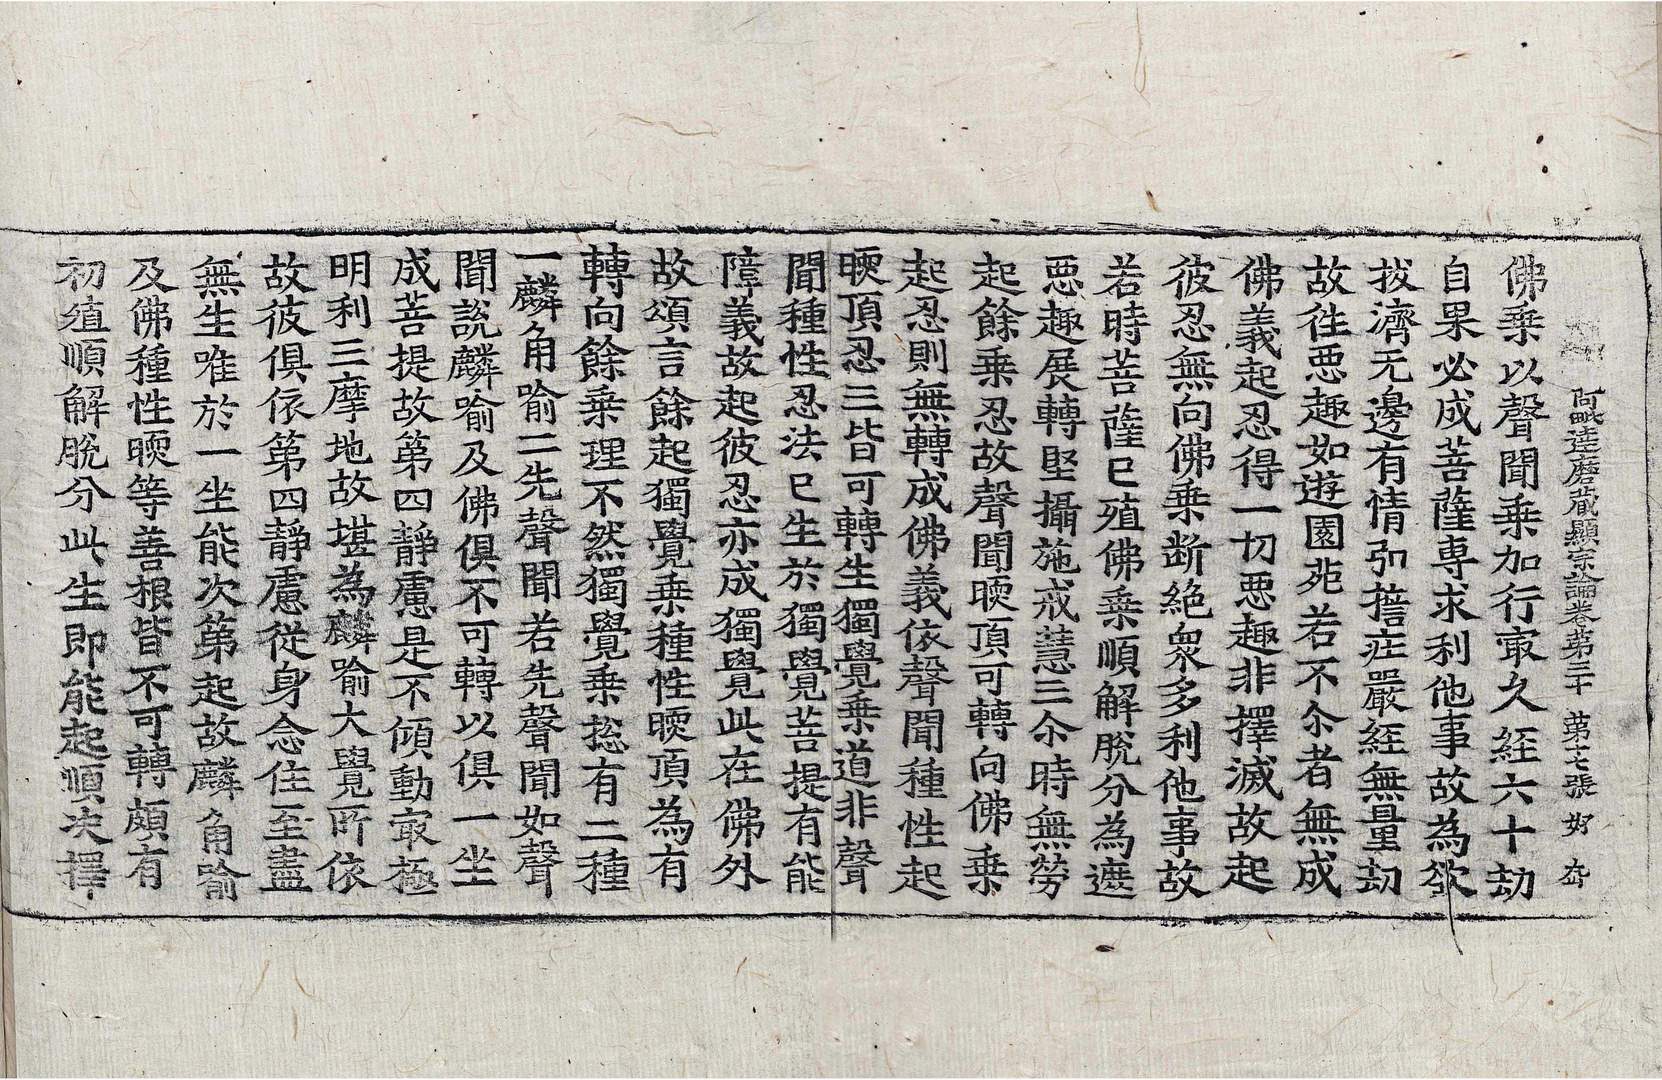 阿毗達磨藏顯宗論卷第三十 第十七張
佛乘以聲聞乘加行㝡久經六十劫
自果必成菩薩專求利他事故為欲
拔濟无邊有情弘擔疘嚴經無量劫
故徃惡趣如遊園苑若不尒者無成
佛義起忍得一切惡趣非擇滅故起
彼忍無向佛乘断絶衆多利他事故
若時菩薩已殖佛乘順解脫分為遮
惡趣展轉堅攝施戒慧三尒時無勞
起餘乘忍故聲聞暝頂可轉向佛乘
起忍則無轉成佛義依聲聞種性起
暝頂忍三皆可轉生獨覺乘道非聲
聞種性忍法已生於獨覺菩提有能
障義故起彼忍亦成獨覺此在佛外
故頌言餘起獨覺乘種性暝頂為有
轉向餘乘理不然獨覺乘捴有二種
一麟角喻二先聲聞若先聲聞如聲
聞說麟喻及佛俱不可轉以俱一坐
成菩提故第四靜慮是不傾動㝡極
明利三摩地故堪為麟喻大覺所依
故彼俱依第四靜慮從身念住至盡
無生唯於一坐能次第起故麟角喻
及佛種性暝等善根皆不可轉頗有
初殖順解脫分此生即能起順决擇